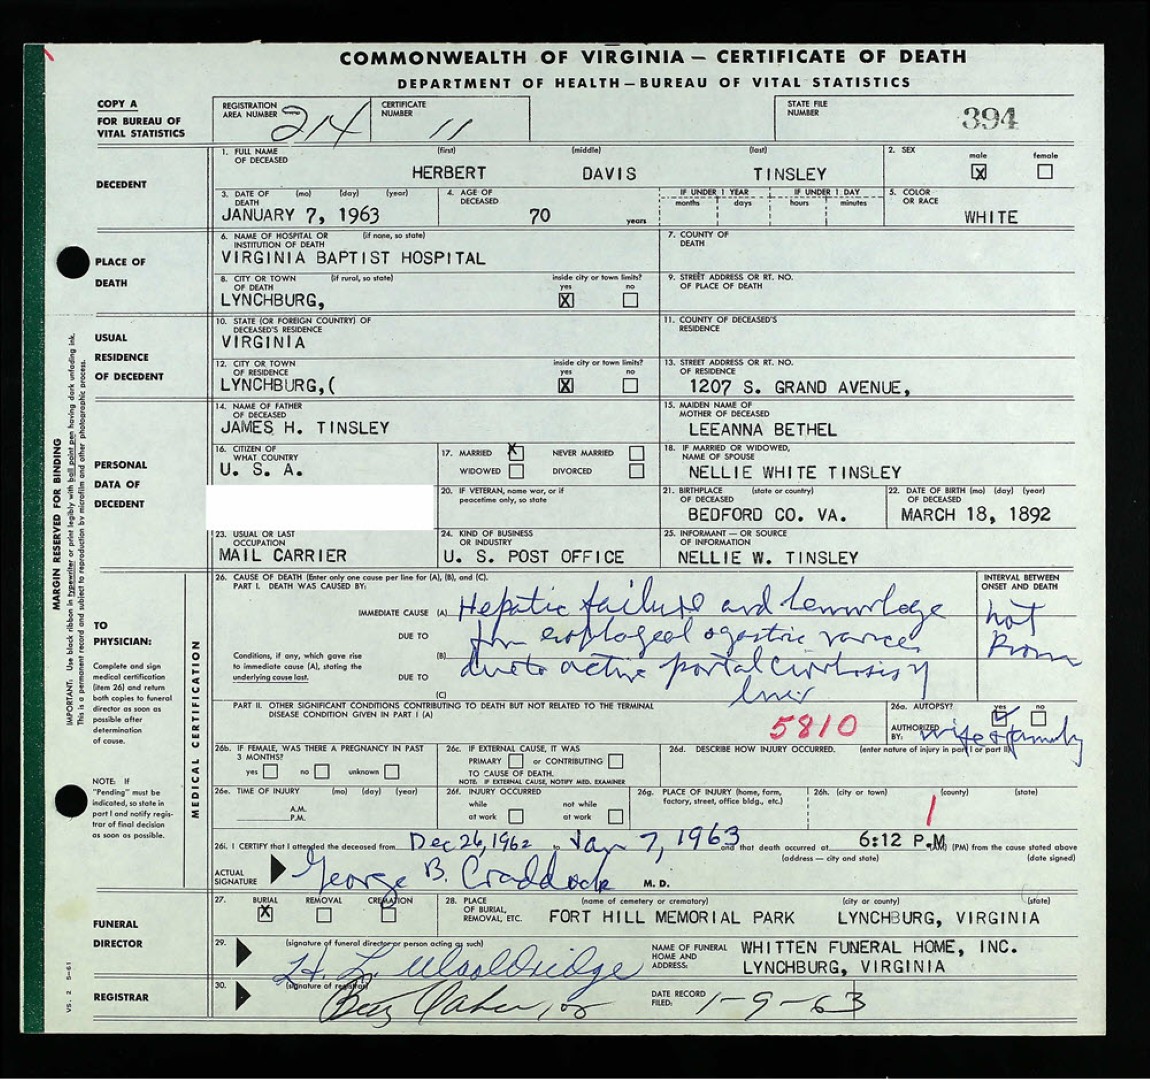 COMMONWEALTH OF VIRGINIA — CERTIFICATE OF DEATH
DEPARTMENT OF HEALTH—BUREAU OF VITAL STATISTICS
COPY A
FOR BUREAU OF
VITAL STATISTICS
REGISTRATION
AREA NUMBER 214
CERTIFICATE
NUMBER 11
STATE FILE
NUMBER 394
DECEDENT
1. FULL NAME (first) (middle) (last)
OF DECEASED
HERBERT DAVIS TINSLEY
2. SEX male female
X
3. DATE OF (mo) (day) (year)
DEATH
JANUARY 7, 1963
4. AGE OF
DECEASED
70 years
IF UNDER 1 YEAR IF UNDER 1 DAY
months days hours minutes
5. COLOR
OR RACE
WHITE
PLACE OF
DEATH
6. NAME OF HOSPITAL OR (if none, so state)
INSTITUTION OF DEATH
VIRGINIA BAPTIST HOSPITAL
7. COUNTY OF
DEATH
8. CITY OR TOWN (if rural, so state) inside city or town limits?
OF DEATH yes no
LYNCHBURG, X
9. STREET ADDRESS OR RT. NO.
OF PLACE OF DEATH
USUAL
RESIDENCE
OF DECEDENT
10. STATE (OR FOREIGN COUNTRY) OF
DECEASED'S RESIDENCE
VIRGINIA
11. COUNTY OF DECEASED'S
RESIDENCE
12. CITY OR TOWN inside city or town limits?
OF RESIDENCE yes no
LYNCHBURG,( X
13. STREET ADDRESS OR RT. NO.
OF RESIDENCE
1207 S. GRAND AVENUE,
PERSONAL
DATA OF
DECEDENT
14. NAME OF FATHER
OF DECEASED
JAMES H. TINSLEY
15. MAIDEN NAME OF
MOTHER OF DECEASED
LEEANNA BETHEL
16. CITIZEN OF
WHAT COUNTRY
U. S. A.
17. MARRIED X NEVER MARRIED
WIDOWED DIVORCED
18. IF MARRIED OR WIDOWED,
NAME OF SPOUSE
NELLIE WHITE TINSLEY
20. IF VETERAN, name war, or if
peacetime only, so state
21. BIRTHPLACE (state or country)
OF DECEASED
BEDFORD CO. VA.
22. DATE OF BIRTH (mo) (day) (year)
OF DECEASED
MARCH 18, 1892
23. USUAL OR LAST
OCCUPATION
MAIL CARRIER
24. KIND OF BUSINESS
OR INDUSTRY
U. S. POST OFFICE
25. INFORMANT — OR SOURCE
OF INFORMATION
NELLIE W. TINSLEY
MARGIN RESERVED FOR BINDING
IMPORTANT: Use black ribbon in typewriter or print legibly with ball point pen having dark unfading ink.
This is a permanent record and subject to reproduction by microfilm and other photographic process.
VS. 2 5-61
TO
PHYSICIAN:
Complete and sign
medical certification
(item 26) and return
both copies to funeral
director as soon as
possible after
determination
of cause.
NOTE: If
"Pending" must be
indicated, so state in
part I and notify regis-
trar of final decision
as soon as possible.
MEDICAL CERTIFICATION
26. CAUSE OF DEATH (Enter only one cause per line for (A), (B), and (C).
PART I. DEATH WAS CAUSED BY:
INTERVAL BETWEEN
ONSET AND DEATH
IMMEDIATE CAUSE (A) Hepatic failure and hemorrhage
not
DUE TO
Conditions, if any, which gave rise
to immediate cause (A), stating the
underlying cause last.
(B) due to active portal cirrhosis of
DUE TO
liver
(C)
PART II. OTHER SIGNIFICANT CONDITIONS CONTRIBUTING TO DEATH BUT NOT RELATED TO THE TERMINAL
DISEASE CONDITION GIVEN IN PART I (A)
5810
26a. AUTOPSY? yes no
AUTHORIZED
BY: wife & family
26b. IF FEMALE, WAS THERE A PREGNANCY IN PAST
3 MONTHS?
yes no unknown
26c. IF EXTERNAL CAUSE, IT WAS
PRIMARY or CONTRIBUTING
TO CAUSE OF DEATH.
NOTE: IF EXTERNAL CAUSE, NOTIFY MED. EXAMINER
26d. DESCRIBE HOW INJURY OCCURRED. (enter nature of injury in part I or part II)
26e. TIME OF INJURY (mo) (day) (year)
A.M.
P.M.
26f. INJURY OCCURRED
while not while
at work at work
26g. PLACE OF INJURY (home, farm,
factory, street, office bldg., etc.)
26h. (city or town) (county) (state)
1
26i. I CERTIFY that I attended the deceased from Dec 26, 1962 to Jan 7, 1963 and that death occurred at 6:12 P.M. (PM) from the cause stated above
(address — city and state) (date signed)
ACTUAL
SIGNATURE George B. Craddock M. D.
FUNERAL
DIRECTOR
27. BURIAL REMOVAL CREMATION
X
28. PLACE (name of cemetery or crematory) (city or county) (state)
OF BURIAL,
REMOVAL, ETC.
FORT HILL MEMORIAL PARK LYNCHBURG, VIRGINIA
29. (signature of funeral director or person acting as such)
H. L. Wooldridge
NAME OF FUNERAL
HOME AND
ADDRESS:
WHITTEN FUNERAL HOME, INC.
LYNCHBURG, VIRGINIA
REGISTRAR
30. (signature of registrar)
DATE RECORD
FILED: 1-9-63